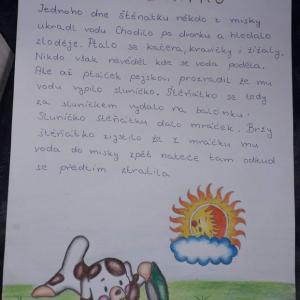 Jednoho dne štěňátku někdo z misky
ukradl vodu Chodilo po dvorku a hledalo
zloděje. Ptalo se kačera, kravičky i žížaly.
Nikdo však nevěděl kde se voda poděla.
Ale až ptáček pejskovi prozradil že mu
vodu vypilo sluníčko. Štěňátko se tedy
za sluníčkem vydalo na balonku.
Sluníčko štěňátku dalo mráček. Brzy
štěňátko zjistilo že z mráčku mu
voda do misky zpět nateče tam odkud
se předtím ztratila